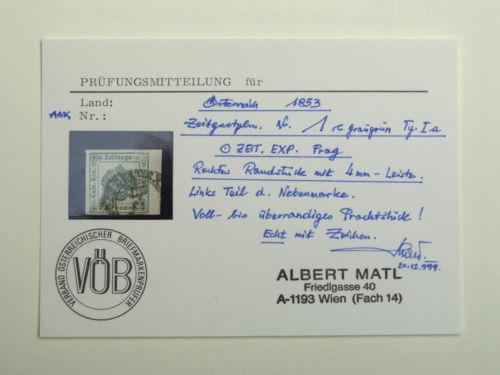 PRÜFUNGSMITTEILUNG für
Land: Österreich 1853
ANK Nr.: Zeitgsstpln. Nr. 1 c graugrün Ty. Ia
⊙ ZEIT. EXP. Prag
Rechtes Randstück mit 4 mm - Leiste.
Links Teil d. Nebenmarke.
Voll- bis überrandiges Prachtstück!
Echt mit Zeichen.
20.12.1999.
Zeitungs-
Kais. Kön.
VERBAND ÖSTERREICHISCHER BRIEFMARKENPRÜFER
VÖB
ALBERT MATL
Friedlgasse 40
A-1193 Wien (Fach 14)